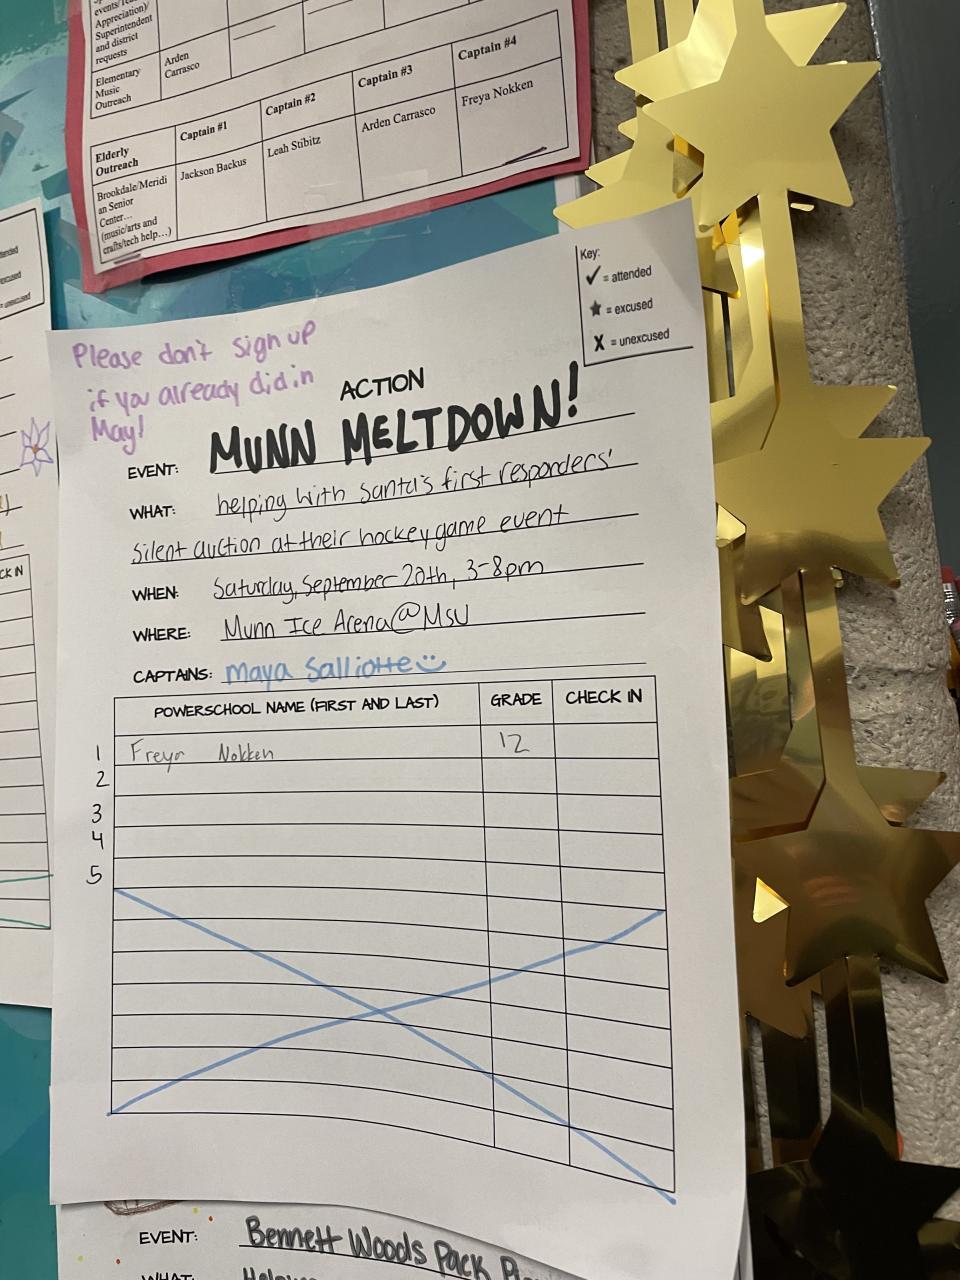 events/
Appreciation)/
Superintendent
and district
requests
Elementary
Music
Outreach
Arden
Carrasco
Elderly
Outreach
Captain #1
Captain #2
Captain #3
Captain #4
Brookdale/Meridi
an Senior
Center...
(music/arts and
crafts/tech help...)
Jackson Backus
Leah Stibitz
Arden Carrasco
Freya Nokken
Key:
✓ = attended
★ = excused
X = unexcused
Please don't sign up
if you already did in
May!
ACTION
EVENT: MUNN MELTDOWN!
WHAT: helping with santa's first responders'
silent auction at their hockey game event
WHEN: Saturday, September 20th, 3-8pm
WHERE: Munn Ice Arena@MSU
CAPTAINS: Maya Salliotte
POWERSCHOOL NAME (FIRST AND LAST) GRADE CHECK IN
1 Freya Nokken 12
2
3
4
5
EVENT: Bennett Woods Pack
WHAT:
CK IN